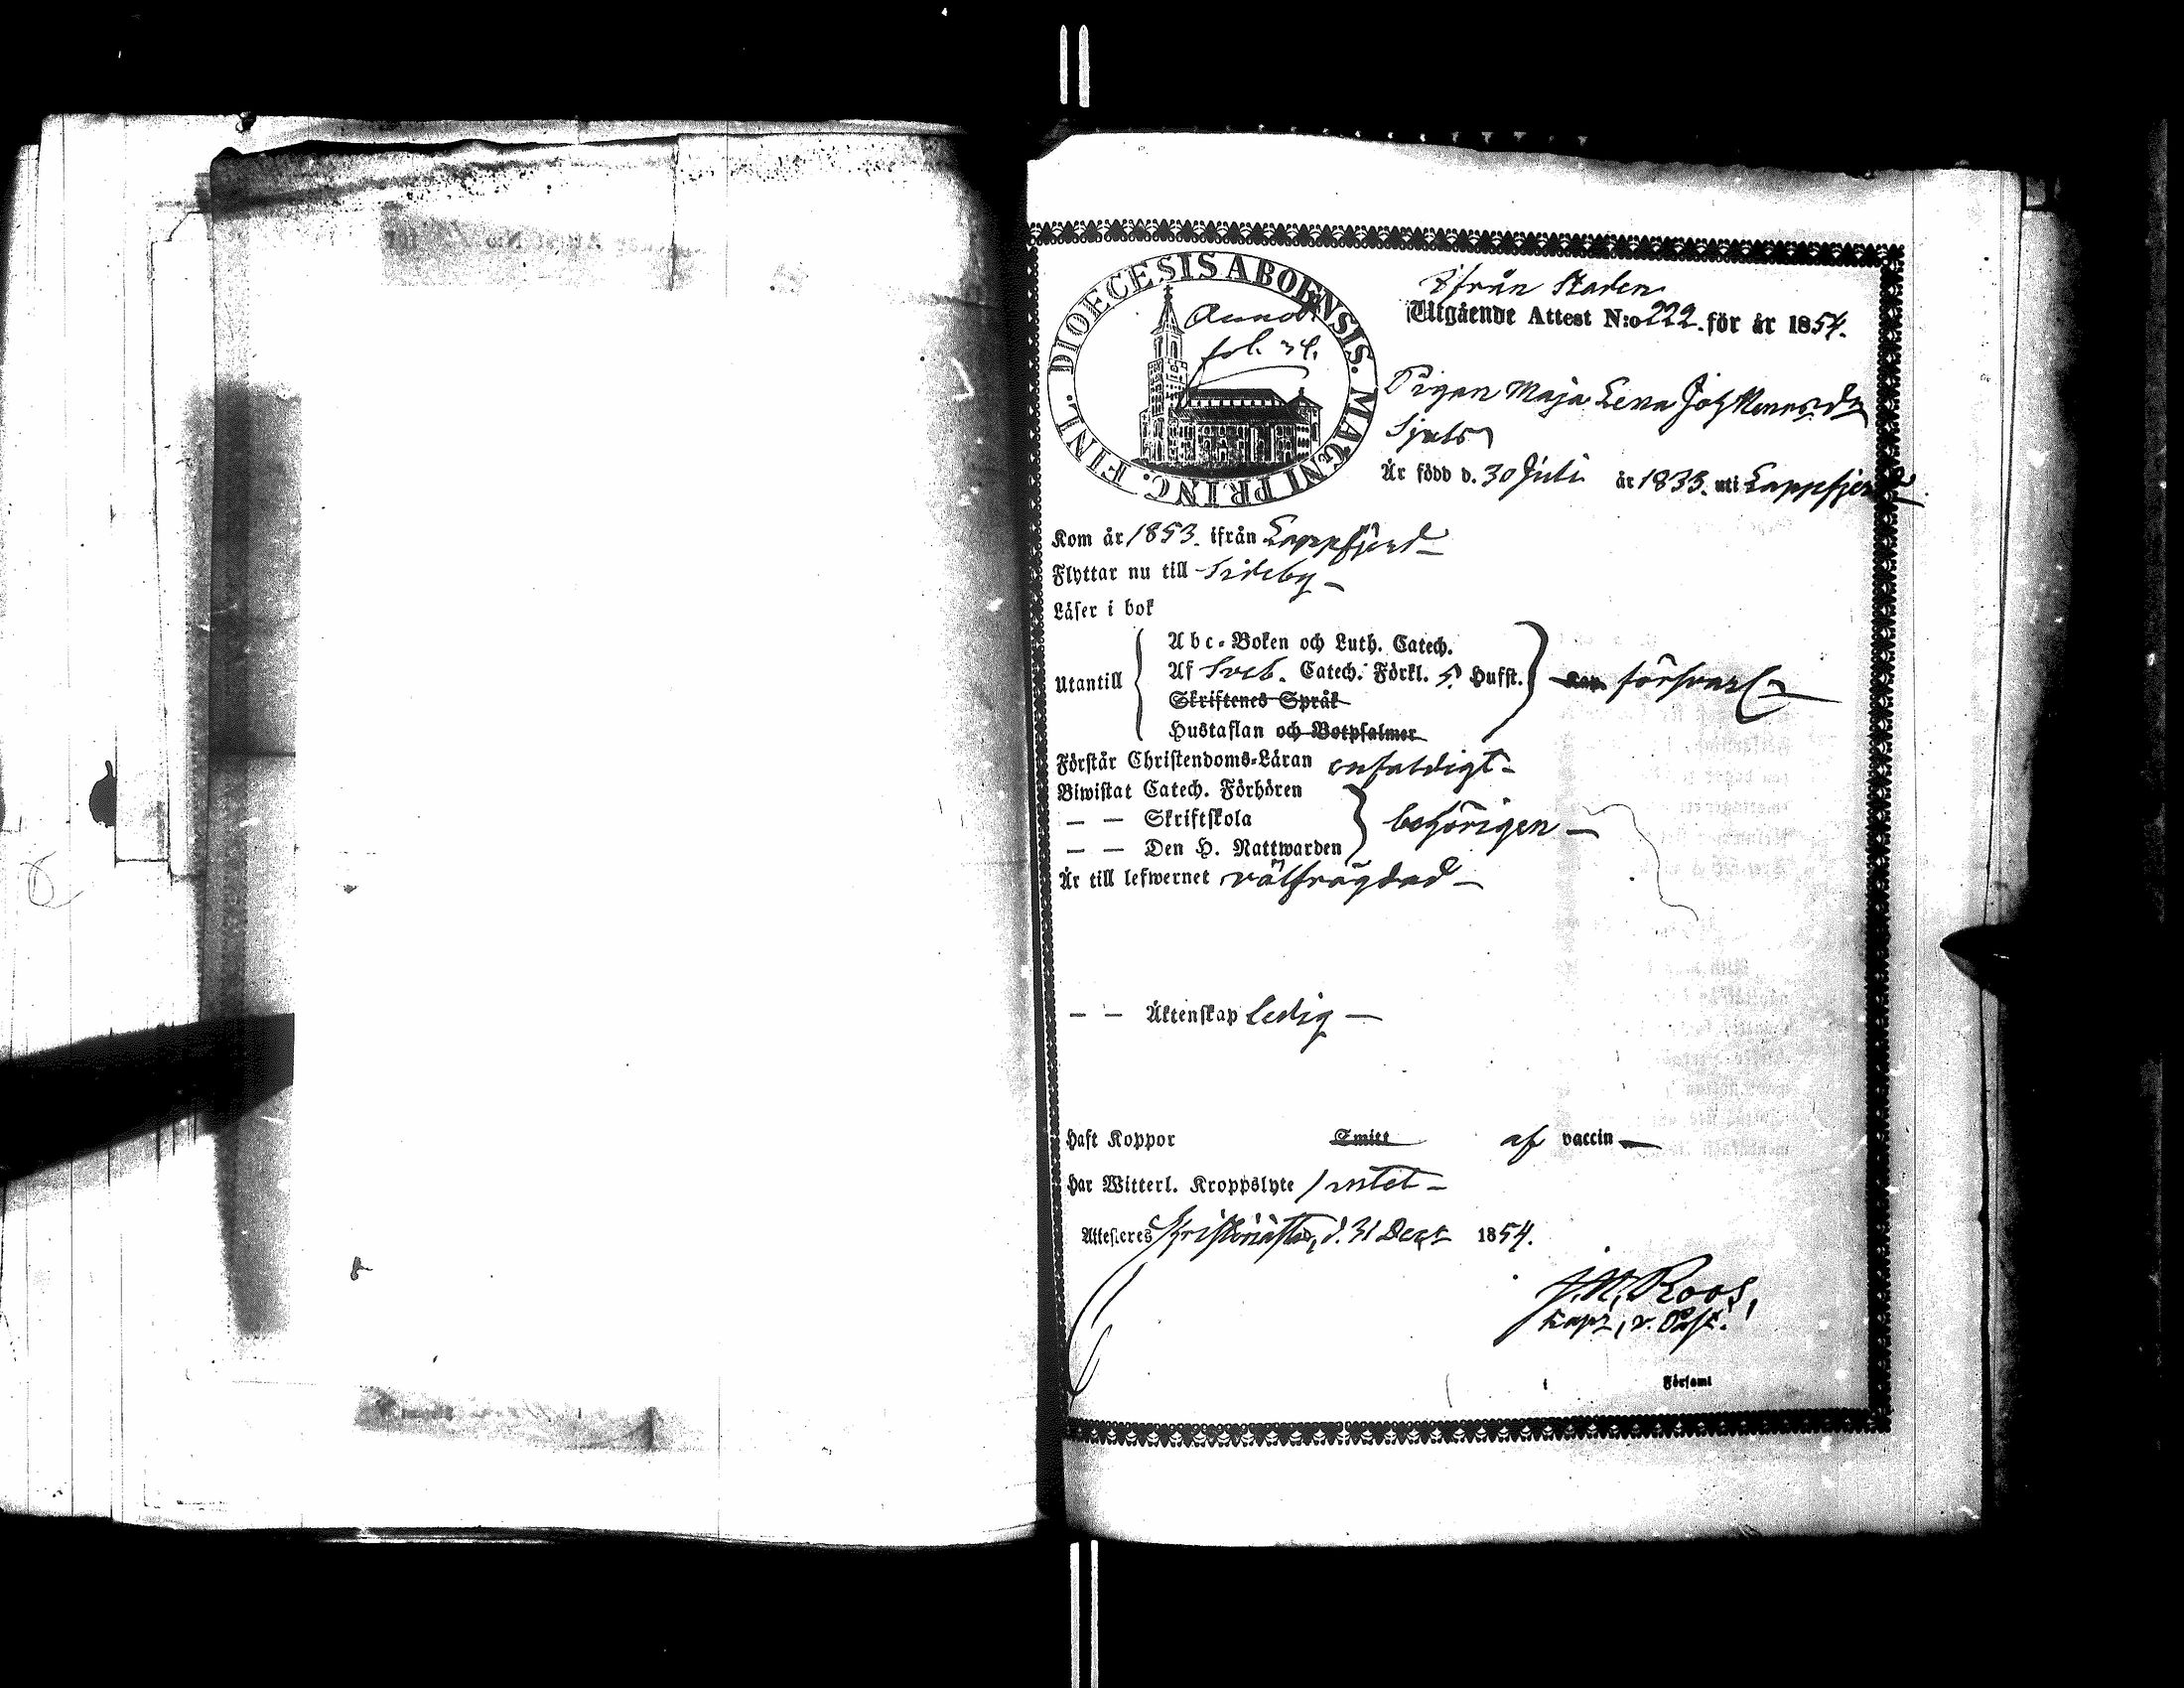 DIOECESIS ABOENSIS. MAGNI PRINC. FINL.
fol. 34.
Ifrån Staden
Utgående Attest N:o 222. för år 1854.
Pigan Maja Lena Joh Mennsdr
Är född d. 30 Juli år 1833. uti Lappfjerd
Kom år 1853. ifrån Lappfjerd
Flyttar nu till Sideby
Läser i bok
Utantill
Abc-Boken och Luth. Catech.
Af Sveb. Catech. Förkl. 5 Hufst.
Skriftenes Språk
Hustaflan och Botpsalmer
försvarl.
Förstår Christendoms-Läran enfaldigt
Biwistat Catech. Förhören
— — Skriftskola
— — Den H. Nattwarden
behörigen
Är till lefwernet välfrägdad
— — Äktenskap Ledig
Haft Koppor Smitt af vaccin
Har Witterl. Kroppslyte intet
Attesteres Kristinæstad, d. 31 Decr 1854.
J. N. Roos,
Kapl, v. Past.
Församl